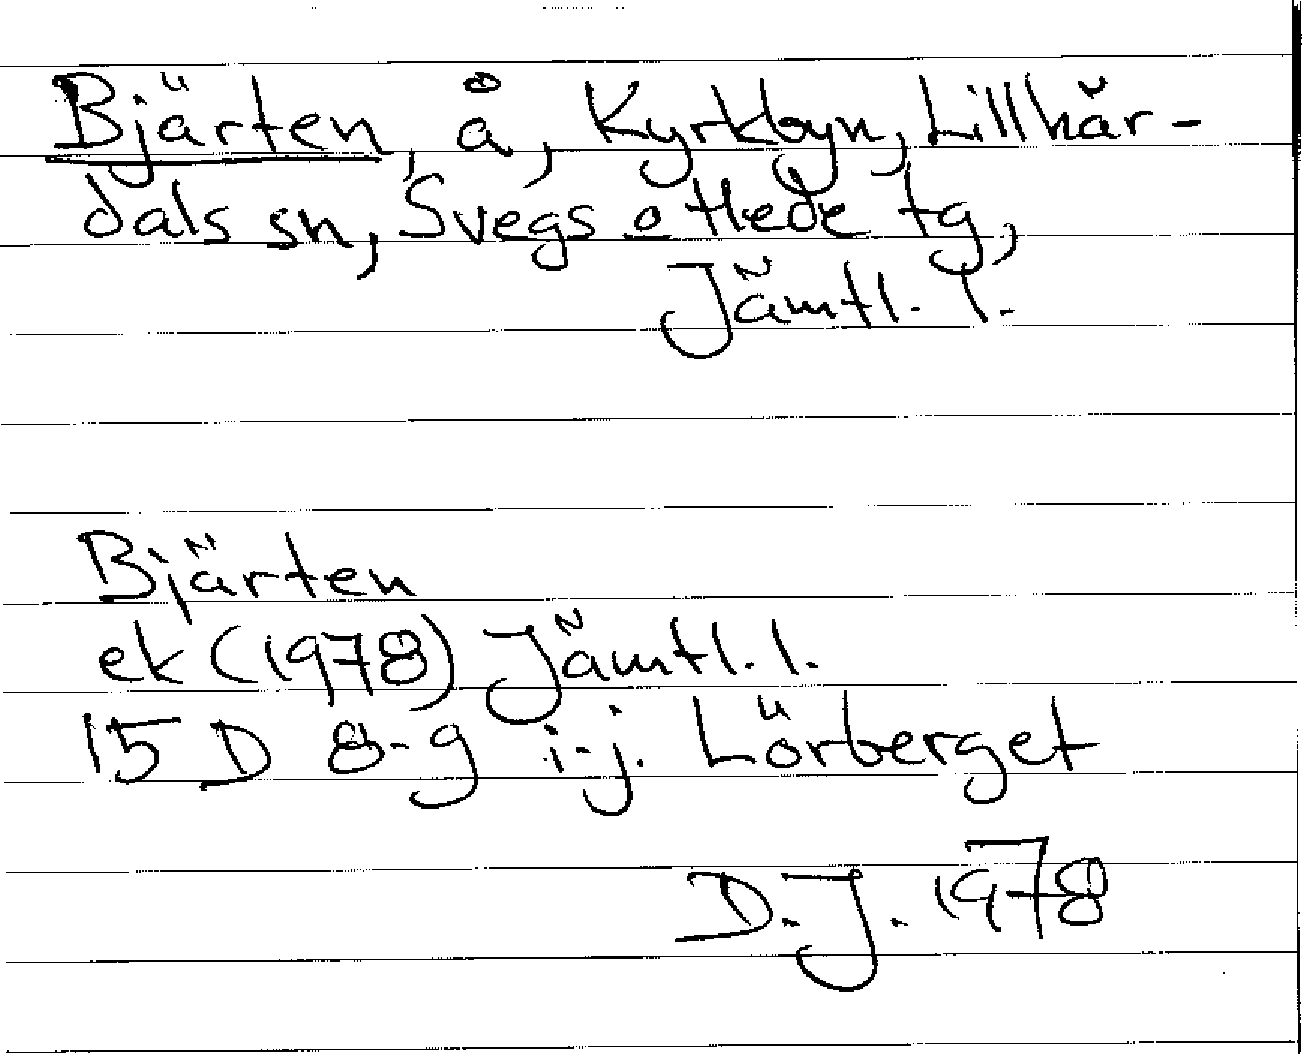 Bjärten, å, Kyrkbyn, Lillhär-
dals sn, Svegs o Hede tg,
Jämtl. l.
Bjärten
ek (1978) Jämtl. l.
15 D 8-9 i-j. Lörberget
D. J. 1978